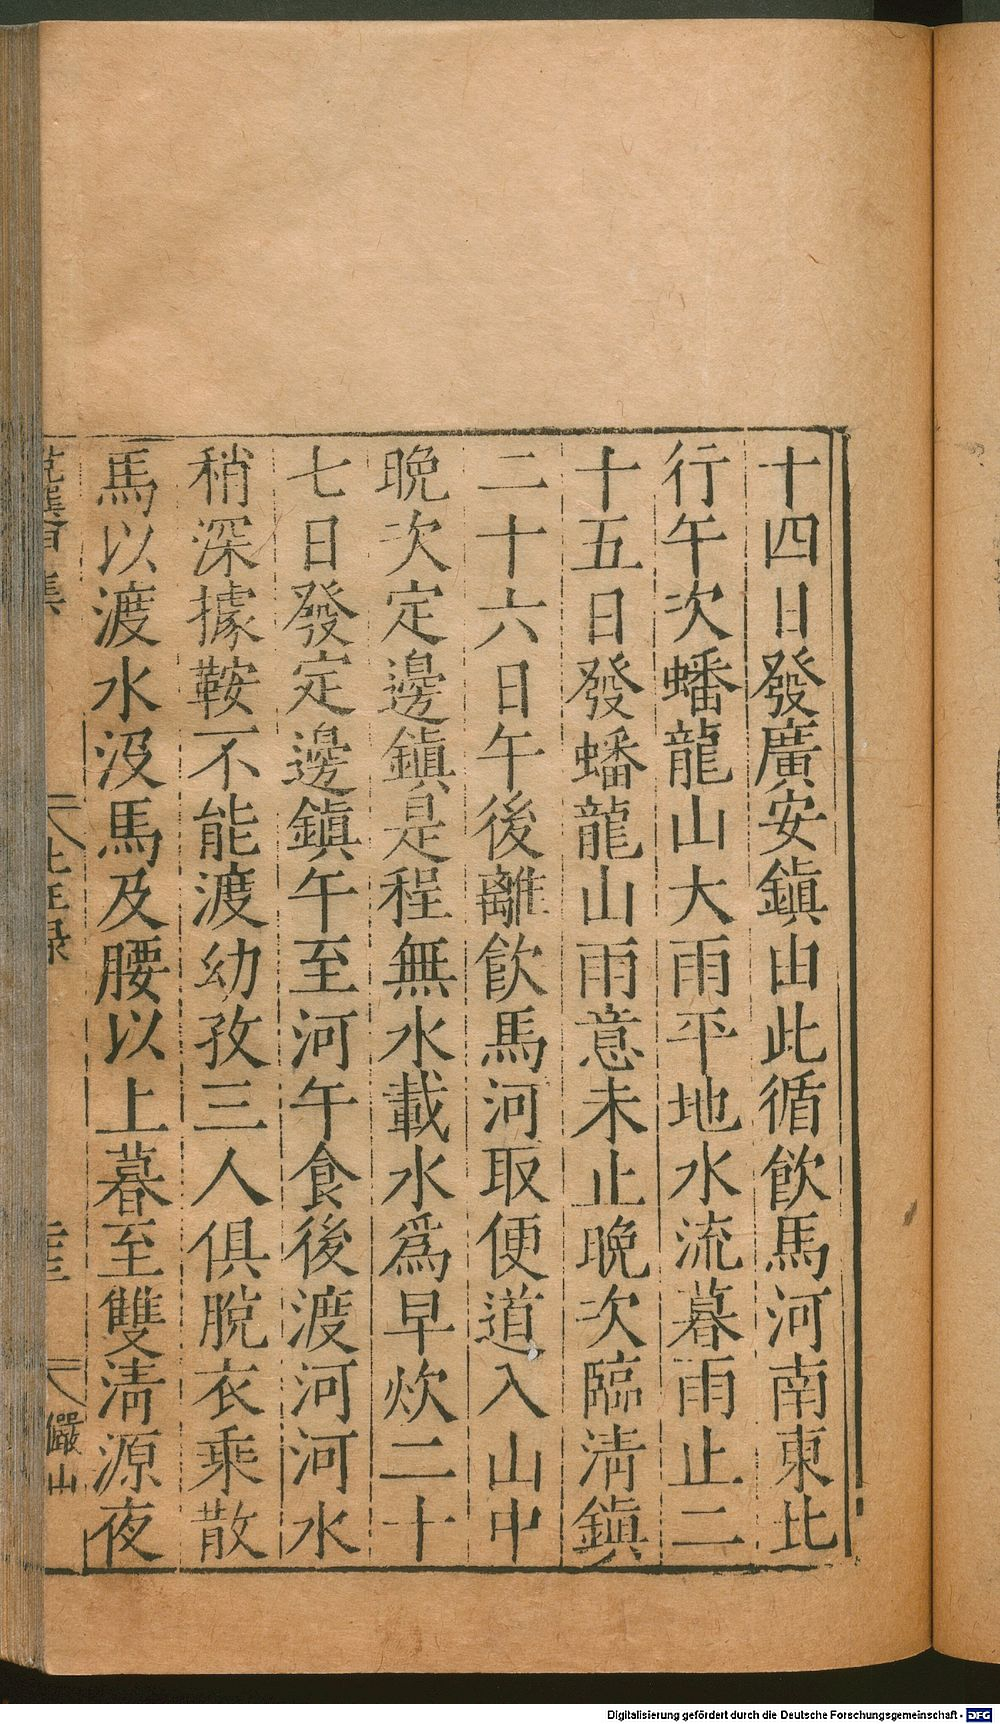 十四日發廣安鎭由此循飮馬河南東北
行午次蟠龍山大雨平地水流暮雨止二
十五日發蟠龍山雨意未止晩次臨淸鎭
二十六日午後離飮馬河取便道入山中
晩次定邊鎭是程無水載水爲早炊二十
七日發定邊鎭午至河午食後渡河河水
稍深據鞍不能渡幼孜三人俱脫衣乘散
馬以渡水沒馬及腰以上暮至雙淸源夜
儼山
Digitalisierung gefördert durch die Deutsche Forschungsgemeinschaft - DFG